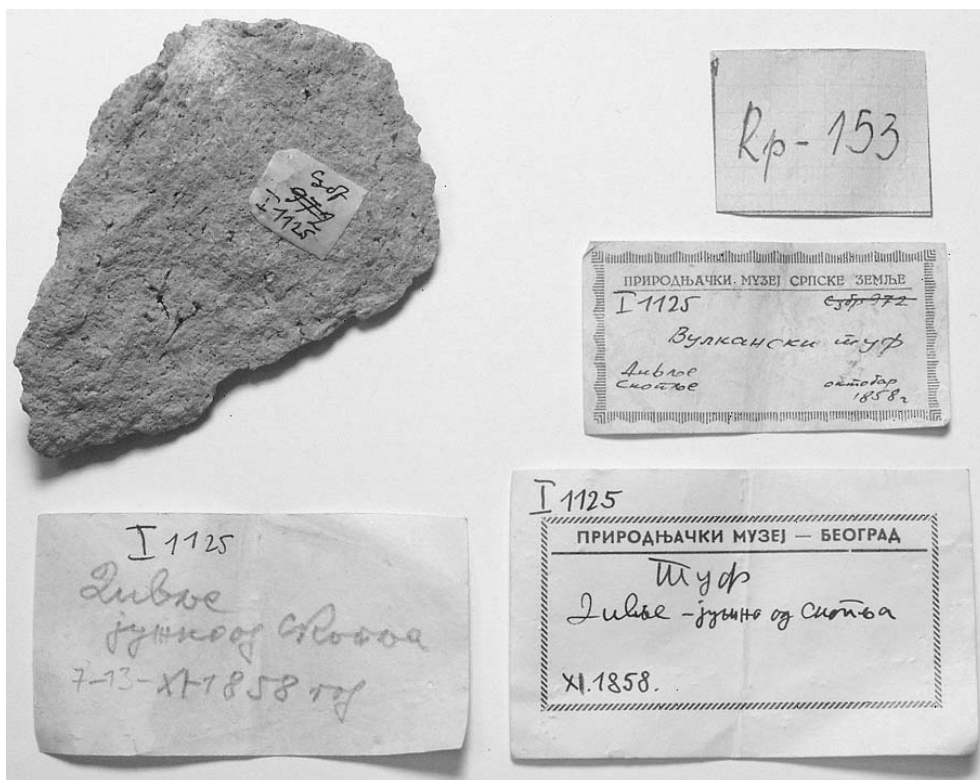 Сзбр
972
I 1125
Rp-153
ПРИРОДЊАЧКИ МУЗЕЈ СРПСКЕ ЗЕМЉЕ
I 1125 Сзбр 972
Вулкански туф
Дивље
Скопље октобар
1858 г
I 1125
Дивље
јужно од Скопља
7-13-XI-1858 год
I 1125
ПРИРОДЊАЧКИ МУЗЕЈ — БЕОГРАД
Туф
Дивље - јужно од Скопља
XI.1858.